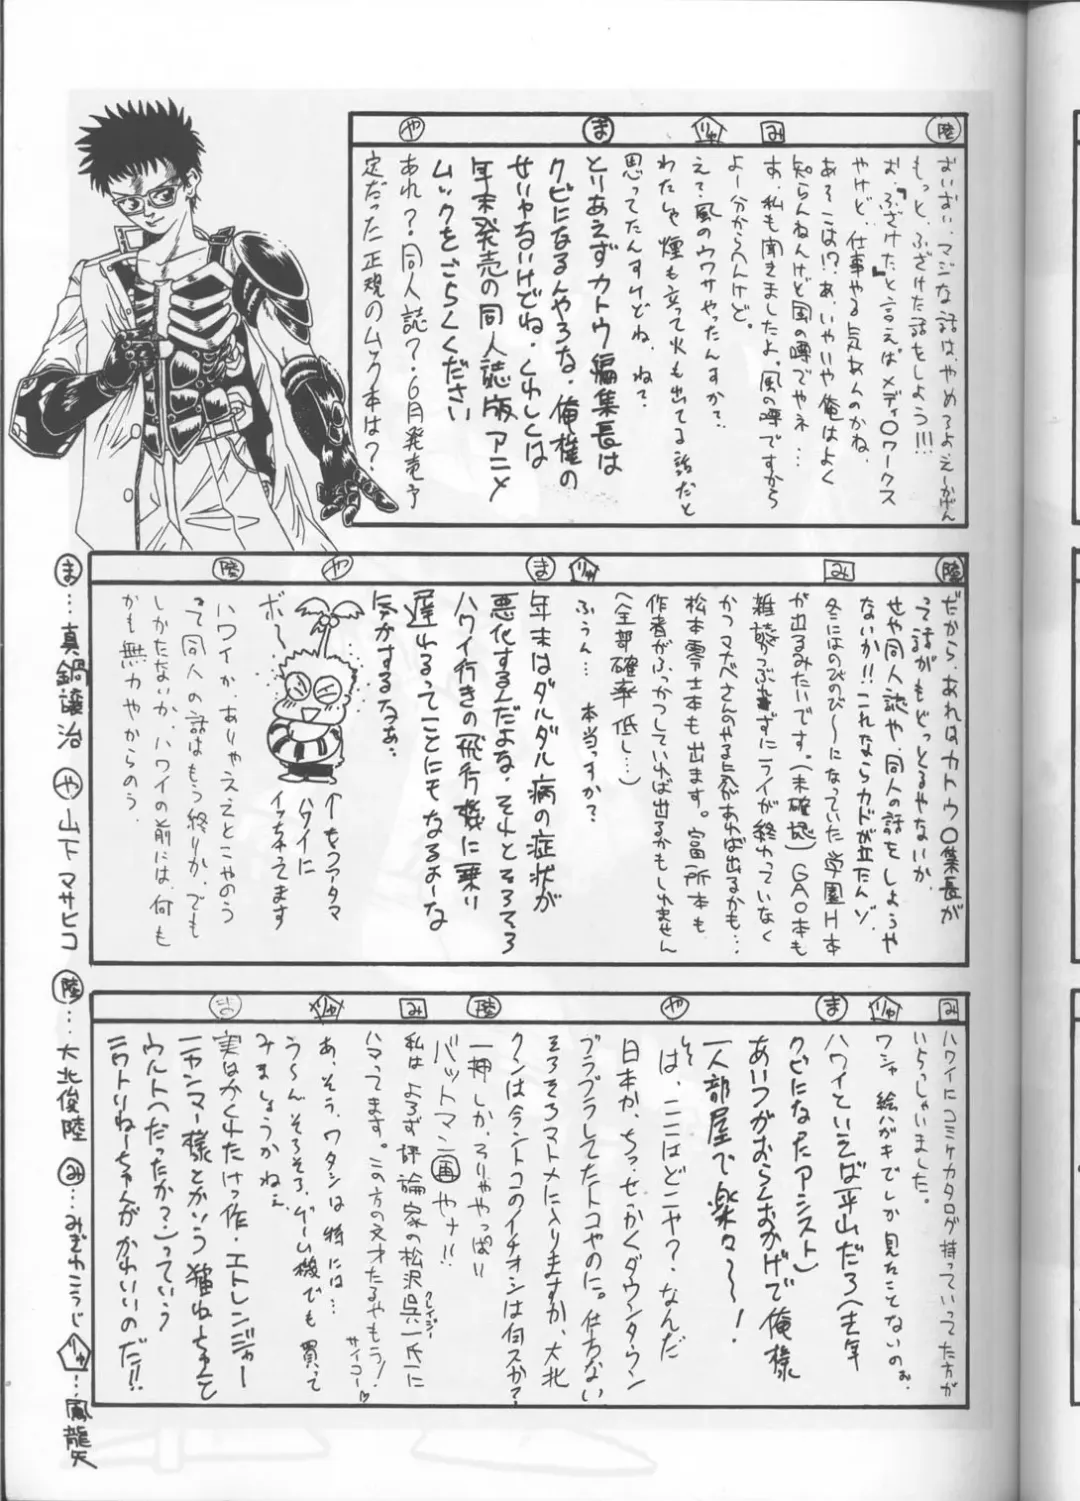 陸
おいおい、マジな話は、やめろよえーかげん
もっと、ふざけた話をしよう!!!
お、『ふざけた』と言えば メディ〇ワークス
やけど、仕事やる気あんのかね、
あそこは!? あ、いやいや俺はよく
知らんねんけど風の噂でやネ…
み
あ、私も聞きましたよ、風の噂ですから
よー分からへんけど。
りゅ
え?風のウワサやったんすか?
わたしゃ煙も立って火も出てる話だと
思ってたんすけどね、ねぇ
ま
とりあえずカトウ編集長は
クビになるんやろな、俺様の
せいやないけどね、くわしくは
年末発売の同人誌版アニメ
ムックをごらくください
や
あれ?同人誌?・6月発売予
定だった正規のムック本は?
陸
だから、あれはカトウ〇集長が
って話がもどっとるやないか、
せや同人誌や、同人の話をしようや
ないか!!これならカドが立たんゾ、
み
冬にはのびのび〜になっていた学園H本
が出るみたいです。(未確認)GAO本も
雑誌がつぶれずにライが終わっていなく
かつマナベさんのやる気があれば出るかも…
松本零士本も出ます。富所本も
作者がふっかつしていれば出るかもしれません
(全部確率低し…)
りゅ
ふぅん… 本当っすか?
ま
年末はダルダル病の症状が
悪化するんだよな、それとそろそろ
ハワイ行きの飛行機に乗り
遅れるってことにもなるよーな
気がするなぁ、
や
ボ〜
↑もうアタマ
ハワイに
イッちゃってます
陸
ハワイか、ありゃええとこやのう
って同人の話はもう終りか、でも
しかたないか、ハワイの前には、何も
かも無力やからのう、
み
ハワイにコミケカタログ持っていってた方が
いらっしゃいました。
りゅ
ワシャ絵ハガキでしか見たことないのぉ、
ま
ハワイといえば平山だろ(去年
クビになったアシスト)
あいつがおらんおかげで俺様
一人部屋で楽々〜!
や
は、ここはどこや?なんだ
日本か、ちっ、せっかくダウンタウン
ブラブラしてたトコやのに。仕方ない
そろそろマトメに入りますか、大北
クンは今ントコのイチオシは何スか?
陸
一押しか、そりゃやっぱ!!
バットマン(再)やナ!!
み
私は よろず評論家の松沢呉一氏に
クレイジー
ハマってます。この方の文才たるやもう!
サイコー♡
りゅ
あ、そう、ワタシは特には…
う〜ん、そろそろ、ゲーム機でも買って
みましょうかねぇ
ま
実はかくれたけっ作・エトレンジャー
ニャンマー様とかいう猫ねーちゃんと
ウルト(だったかな?)っていう
ニワトリねーちゃんがかわいいのだ!!
ま…真鍋譲治 や…山下マサヒコ 陸…大北俊陸 み…みぎわこうじ りゅ…風龍矢